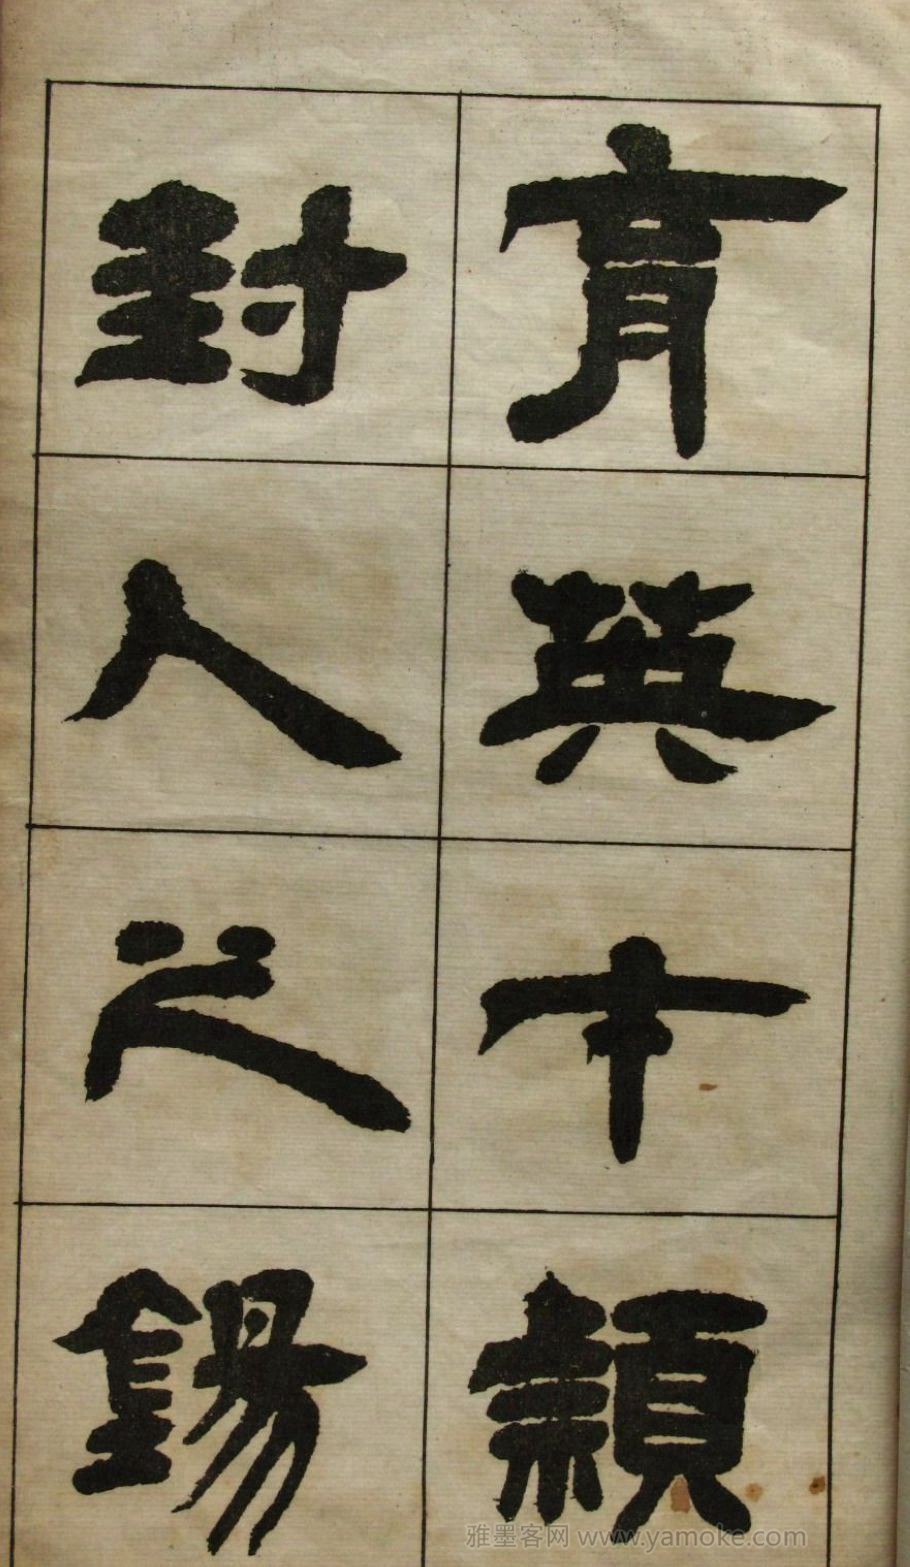 育英才頴
封人之錫
雅墨客网 www.yamoke.com